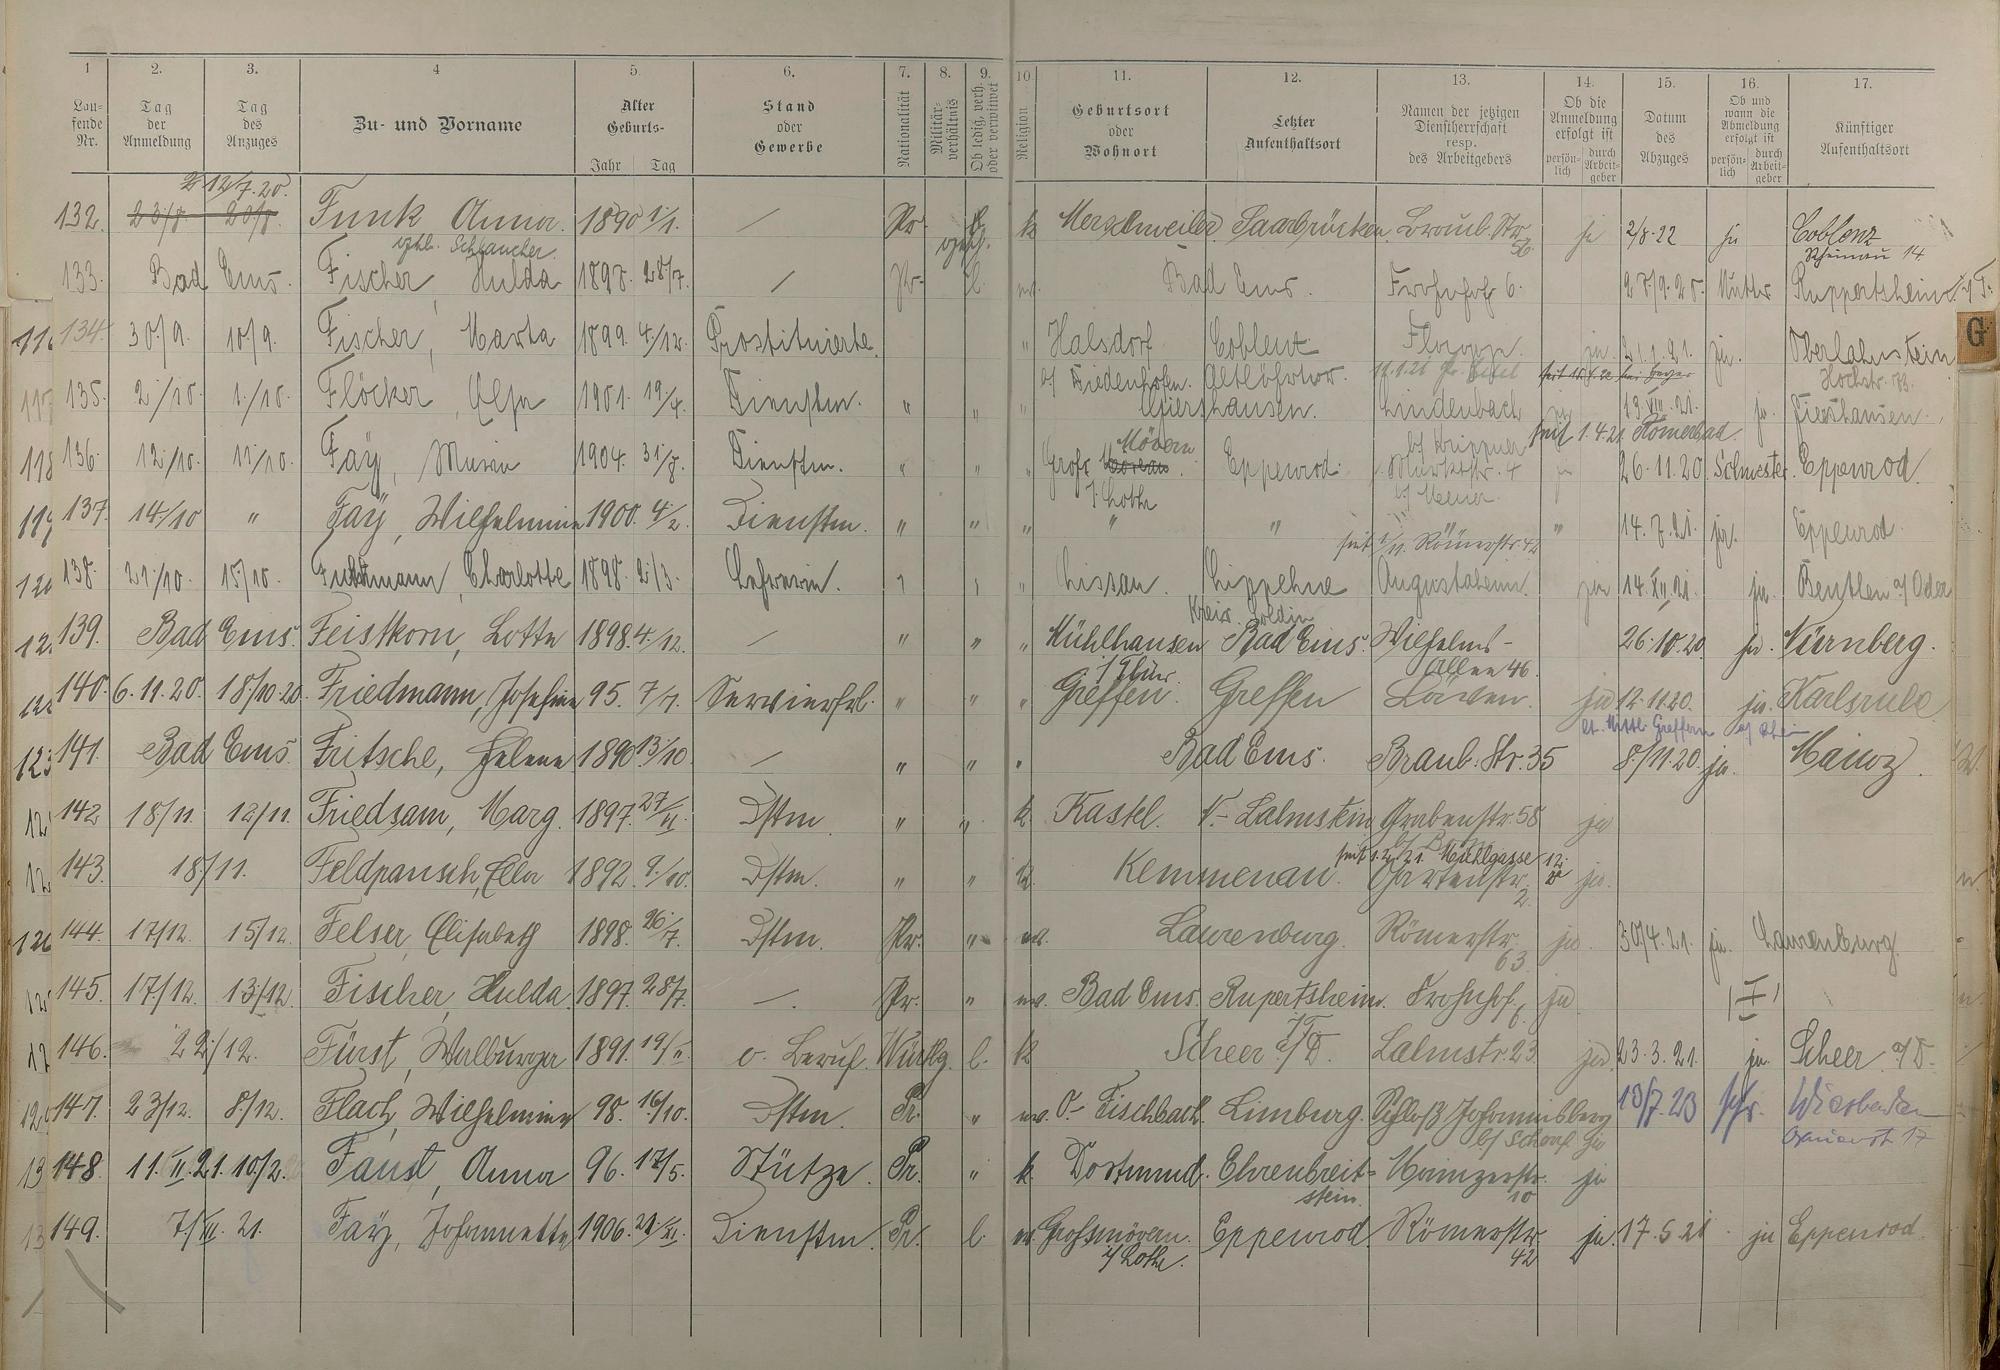 1 2. 3. 4 5. 6. 7. 8. 9. 10 11. 12. 13. 14. 15. 16. 17.
Lau-
fende
Nr.
Tag
der
Anmeldung
Tag
des
Anzuges
Zu- und Vorname
Alter
Geburts-
Jahr Tag
Stand
oder
Gewerbe
Nationalität
Militär-
verhältnis
Ob ledig, verh.
oder verwitwet
Religion
Geburtsort
oder
Wohnort
Letzter
Aufenthaltsort
Namen der jetzigen
Dienstherrschaft
resp.
des Arbeitgebers
Ob die
Anmeldung
erfolgt ist
persön-
lich
durch
Arbeit-
geber
Datum
des
Abzuges
Ob und
wann die
Abmeldung
erfolgt ist
persön-
lich
durch
Arbeit-
geber
Künftiger
Aufenthaltsort
12/7.20.
132. 23/8 20/8. Funk Anna. 1890 1/1. / Pr. k Merschweiler. Saarbrücken. Braub. Str. 56 ja 2/8.22 ja Coblenz
Rheinau 14
133. Bad Ems. Fischer, Hulda 1898. 28/7. / Pr. l. ev. Bad Ems. Frohnhof 6. 28/9.20. Mutter Ruppertshein i/T.
134. 30/9. 10/9. Fischer, Marta 1899. 4/12. Prostituierte. " Halsdorf Coblenz ja. 21.1.21. ja. Oberlahnstein
Hochstr. 73.
b/ Diedenhofen.
135. 2/10. 1/10. Flöcker, Elsa 1901. 19/4. Dienstm. " " " Giershausen. Lindenbach ja 19.VIII.21. ja. Giershausen.
seit 1.4.21. Römerbad.
136. 12/10. 11/10. Fay, Maria 1904. 31/8. Dienstm. " " " Gross Mövern Eppenrod. Marktstr. 4 ja 26.11.20. Schwester. Eppenrod.
i/Lothr
137. 14/10 " Fay, Wilhelmine 1900. 4/2. Dienstm. " " " " " " 14.7.21. ja. Eppenrod.
seit 1/11. Römerstr. 42
138. 21/10. 15/10. Charlotte 1898. 2/3. Lehrerin. " " " Lissan. Lippehne Augustaheim. ja 14.XII.21. ja. Beuthen a/Oder
Kreis Soldin
139. Bad Ems. Feistkorn, Lotte 1898. 4/12. / " " " Mühlhausen Bad Ems. Wilhelms- 26.10.20 ja. Nürnberg.
i Thür. allee 46.
140. 6.11.20. 18/10.20. Friedmann, Josefine 95. 7/7. Servierfrl. " " " Greffen. Greffen Löwen. ja 12.11.20. ja. Karlsruhe
141. Bad Ems. Fritsche, Helene 1890 13/10. / " " " Bad Ems. Braub. Str. 35 8./11.20. ja. Mainz.
142 18/11. 12/11. Friedsam, Marg. 1897. 27/II. Dstm. " " k. Kastel. N.-Lahnstein Grabenstr. 58 ja
seit 1.2.21. Mühlgasse 12.
143. 18/11. Feldpausch, Ella 1892. 9/10. Dstm. " " k. Kemmenau. Gartenstr. 2. ja.
144. 17/12. 15/12. Felser, Elisabeth 1898. 26/7. Dstm. Pr. " ev. Laurenburg. Römerstr. 63 ja. 30/4.21. ja. Laurenburg.
145. 17/12. 13/12. Fischer, Hulda. 1897. 28/7. / Pr. " ev. Bad Ems. Rupertshein. Frohnhof. 6. ja.
i/T.
146. 22/12. Fürst, Walburga 1891. 19/II. o. Beruf. Württg. l. k Scheer a/D. Lahnstr. 23 ja. 23.3.21. ja. Scheer a/D.
147. 23/12. 8/12. Flach, Wilhelmine 98. 16/10. Dstm. Pr. " ev. O.-Fischbach. Limburg. Schloß Johannisberg 13/7.23 Wiesbaden
b/ Scharf ja
148. 11.II.21. 10/2. Faust, Anna 96. 17/5. Stütze. Pr. " k. Dortmund. Ehrenbreit- Mainzerstr. ja
stein. 10
149. 7./III.21. Fay, Johannette 1906. 21/XI. Dienstm. Pr. l. ev Großmövern. Eppenrod. Römerstr. ja. 17.5.21. ja Eppenrod.
i/ Lothr. 42
G